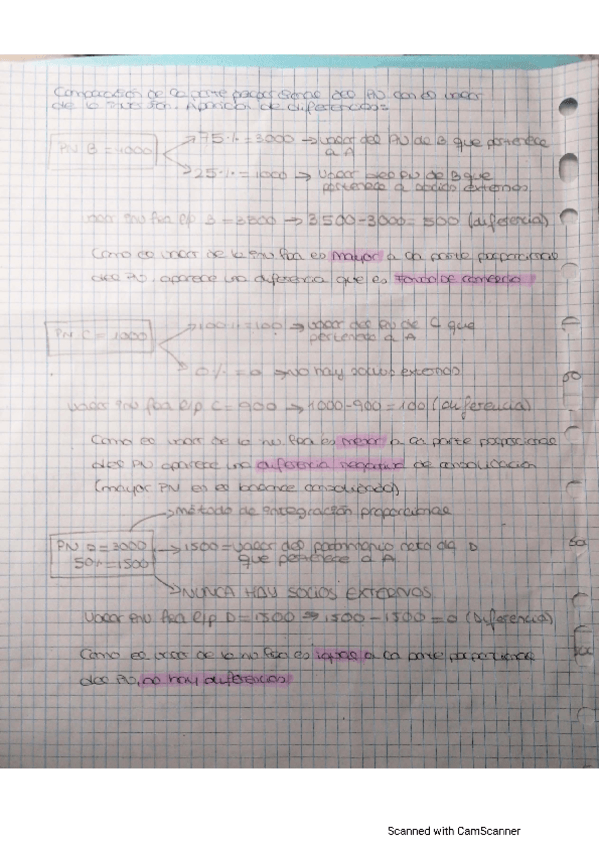 Comparación de la parte proporcional del PN con el valor
de la inversión. Aparición de diferencias
PN B = 4000
75% = 3000 → valor del PN de B que pertenece
a A
25% = 1000 → Valor del PN de B que
pertenece a socios externos
inv fra l/p B = 3500 → 3500-3000 = 500 (diferencia)
Como el valor de la inv fra es mayor a la parte proporcional
del PN, aparece una diferencia que es fondo de comercio
PN C = 1000
100% = 100 → valor del PN de C que
pertenece a A
0% = 0 → no hay socios externos
Valor inv fra l/p C = 900 → 1000-900 = 100 (diferencia)
Como el valor de la inv. fra es menor a la parte proporcional
del PN aparece una diferencia negativa de consolidación
(mayor PN en el balance consolidado)
→ método de integración proporcional
PN D = 3000
50% = 1500
→ 1500 = valor del patrimonio neto de D
que pertenece a A
→ NUNCA HAY SOCIOS EXTERNOS
Valor inv fra l/p D = 1500 → 1500 - 1500 = 0 (Diferencia)
Como el valor de la inv fra es igual a la parte proporcional
del PN, no hay diferencias
Scanned with CamScanner